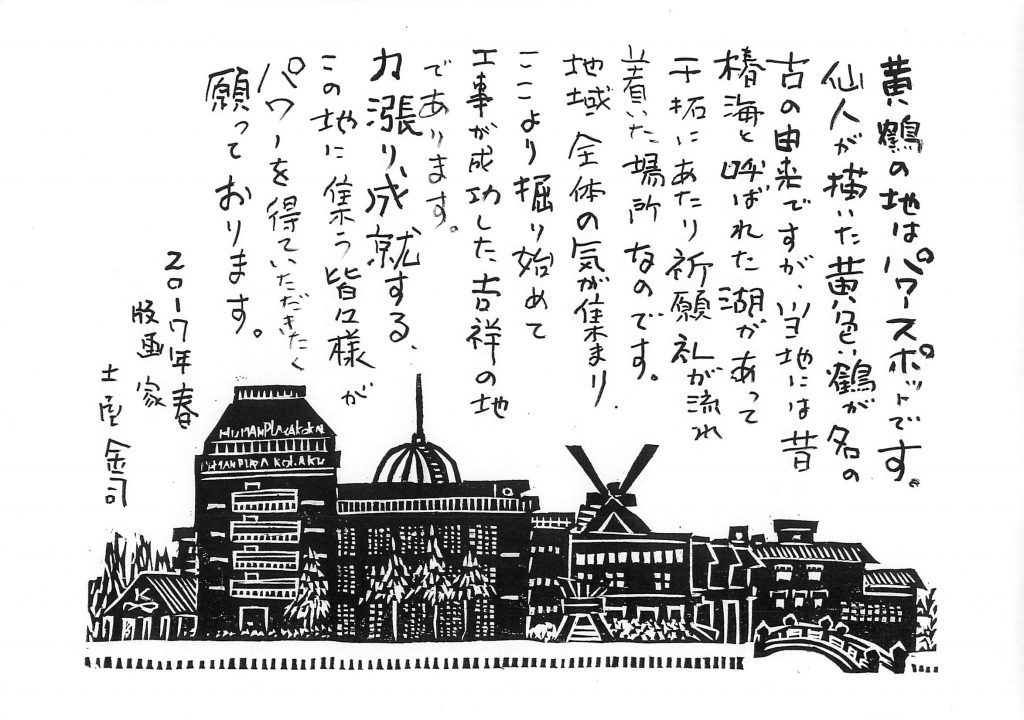 黄鶴の地はパワースポットです。
仙人が描いた黄色い鶴が名の
古の由来ですが、当地には昔
椿海と呼ばれた湖があって
干拓にあたり祈願札が流れ
着いた場所なのです。
地域全体の気が集まり、
ここより掘り始めて
工事が成功した吉祥の地
であります。
力漲り、成就する、
この地に集う皆々様が
パワーを得ていただきたく
願っております。
2017年春
版画家
土屋金司
HUMANPLAZA
HUMANPLAZA KOKAKU
K